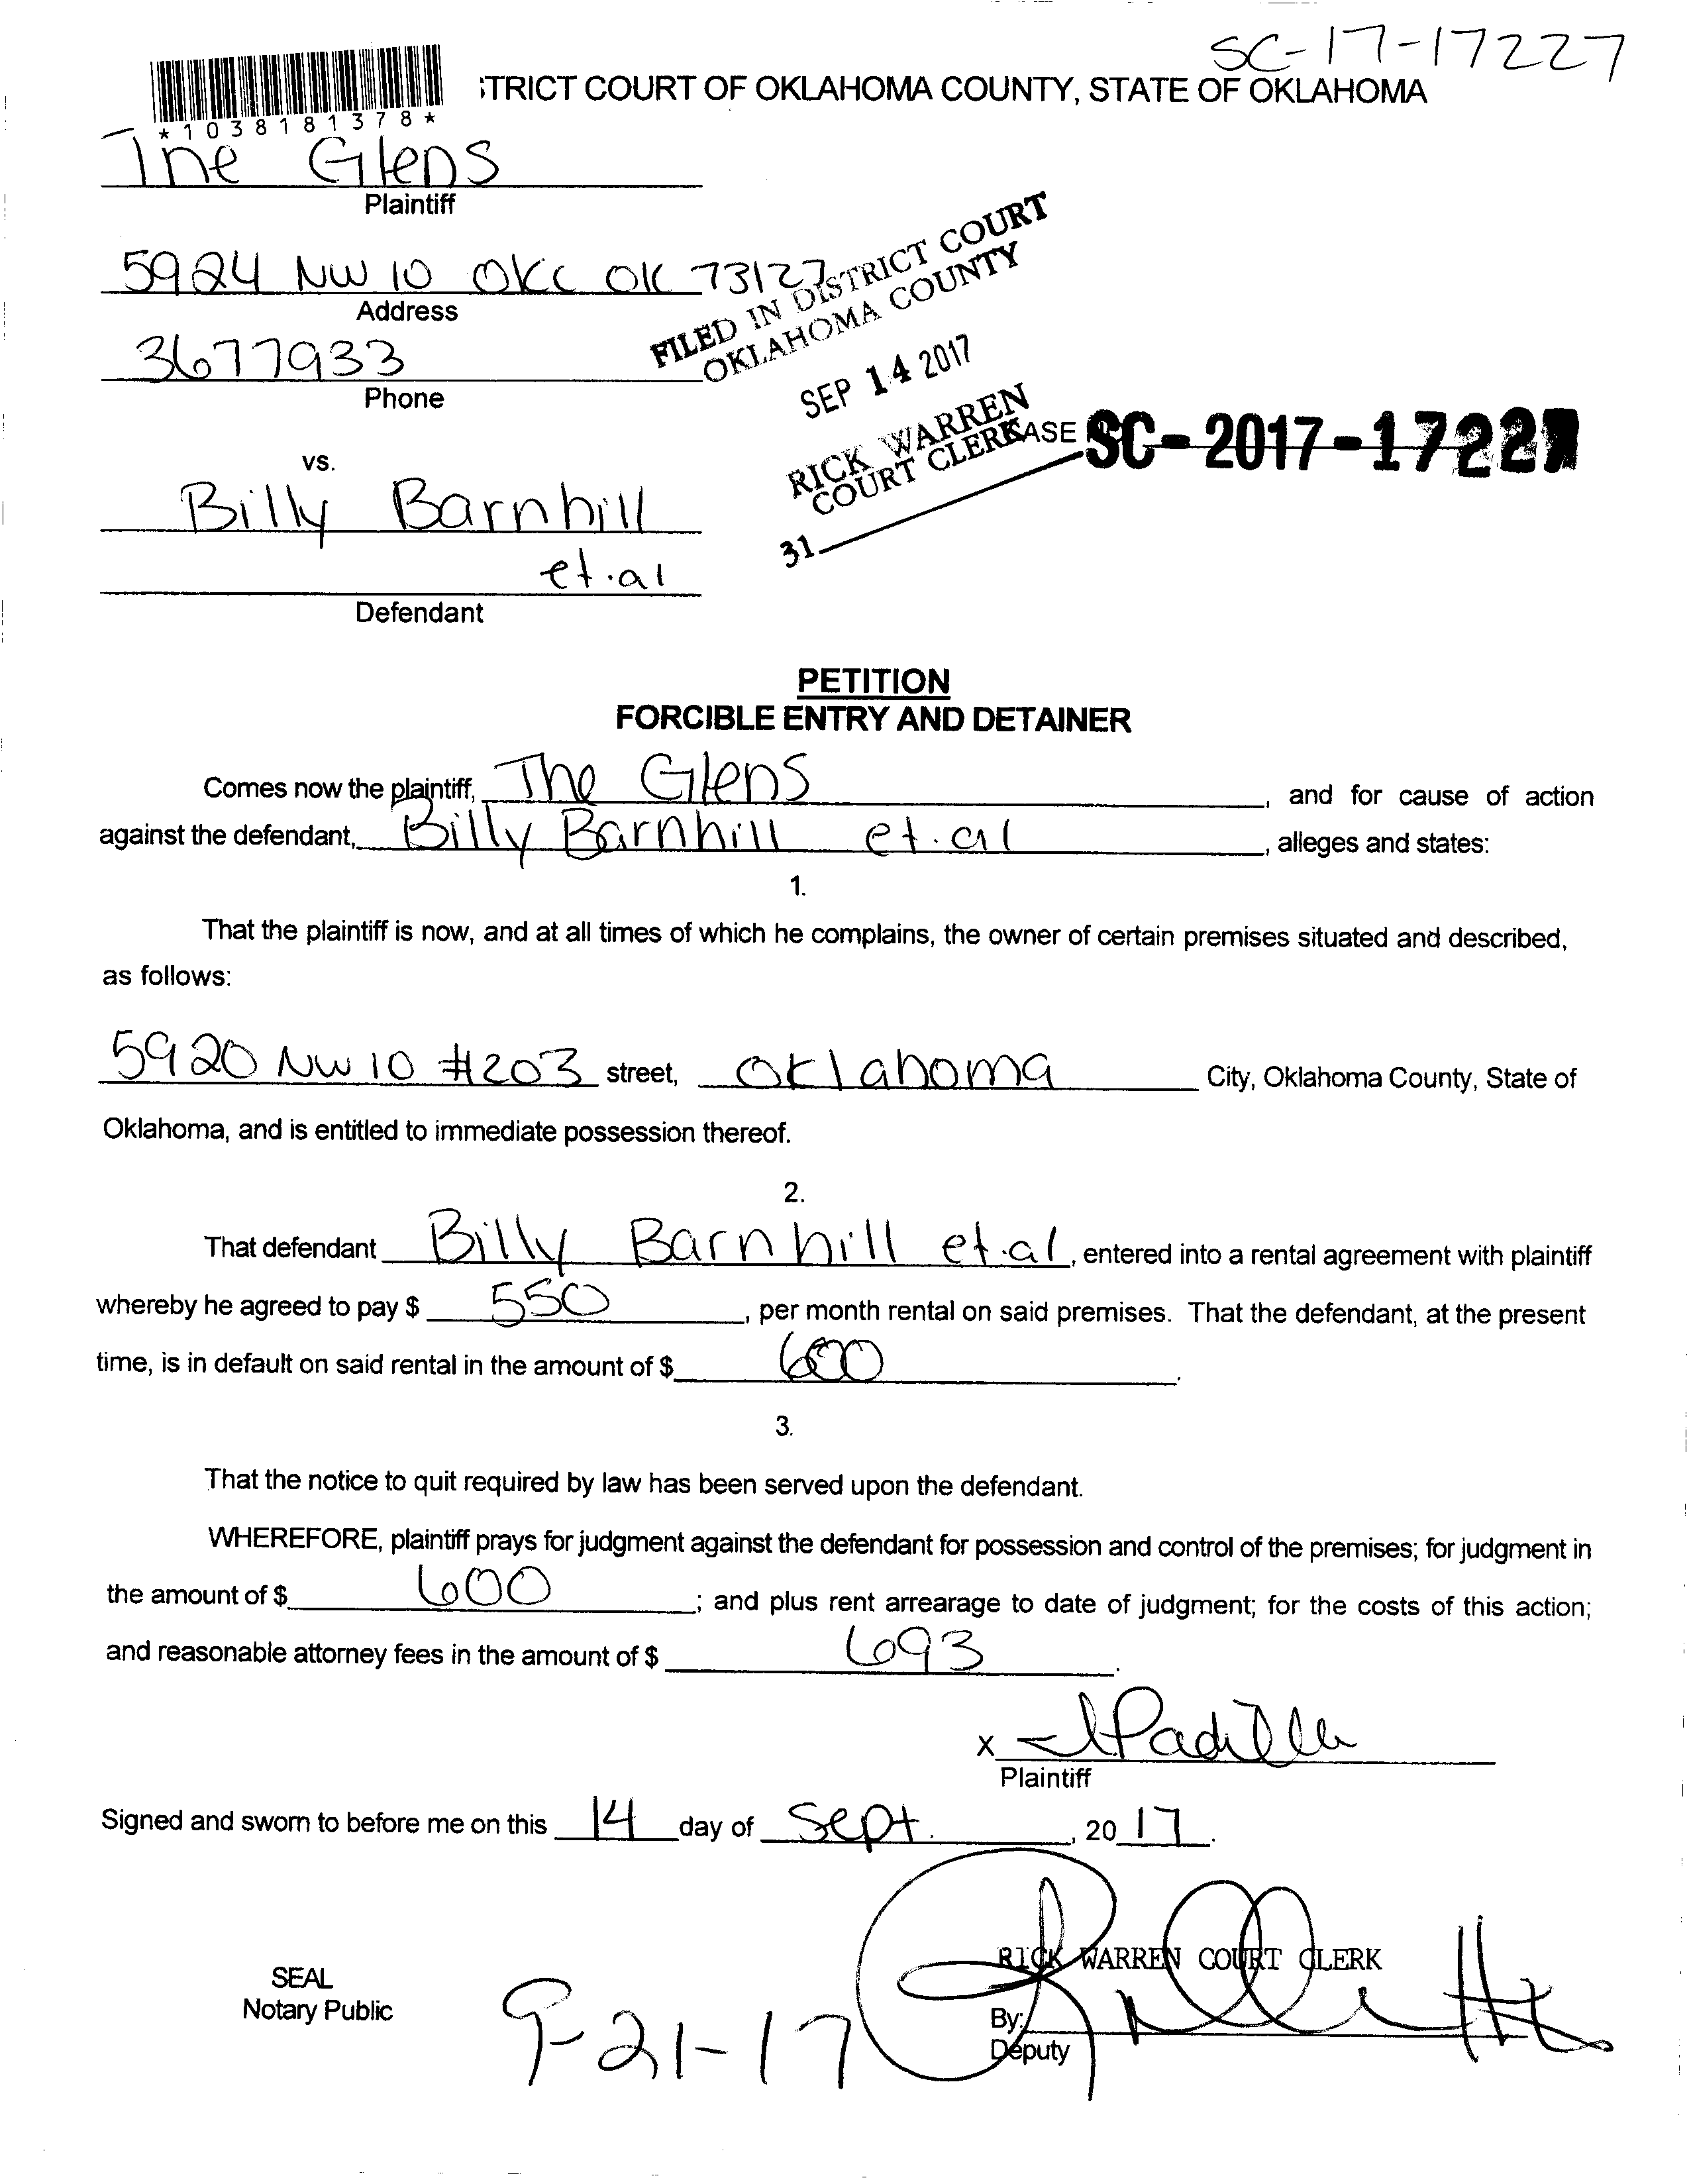 SC-17-17227
TRICT COURT OF OKLAHOMA COUNTY, STATE OF OKLAHOMA
*1038181378*
The Glens
Plaintiff
5924 NW 10 OKC OK 73127
Address
3677933
Phone
FILED IN DISTRICT COURT
OKLAHOMA COUNTY
SEP 14 2017
RICK WARREN
COURT CLERK
31
CASE SC-2017-17227
vs.
Billy Barnhill
et.al
Defendant
PETITION
FORCIBLE ENTRY AND DETAINER
Comes now the plaintiff, The Glens, and for cause of action
against the defendant, Billy Barnhill et.al, alleges and states:
1.
That the plaintiff is now, and at all times of which he complains, the owner of certain premises situated and described,
as follows:
5920 NW 10 #203 street, Oklahoma City, Oklahoma County, State of
Oklahoma, and is entitled to immediate possession thereof.
2.
That defendant Billy Barnhill et.al, entered into a rental agreement with plaintiff
whereby he agreed to pay $ 550, per month rental on said premises. That the defendant, at the present
time, is in default on said rental in the amount of $ 600.
3.
That the notice to quit required by law has been served upon the defendant.
WHEREFORE, plaintiff prays for judgment against the defendant for possession and control of the premises; for judgment in
the amount of $ 600; and plus rent arrearage to date of judgment; for the costs of this action;
and reasonable attorney fees in the amount of $ 693.
x Padilla
Plaintiff
Signed and sworn to before me on this 14 day of Sept., 2017.
RICK WARREN COURT CLERK
SEAL
Notary Public
9-21-17
By:
Deputy